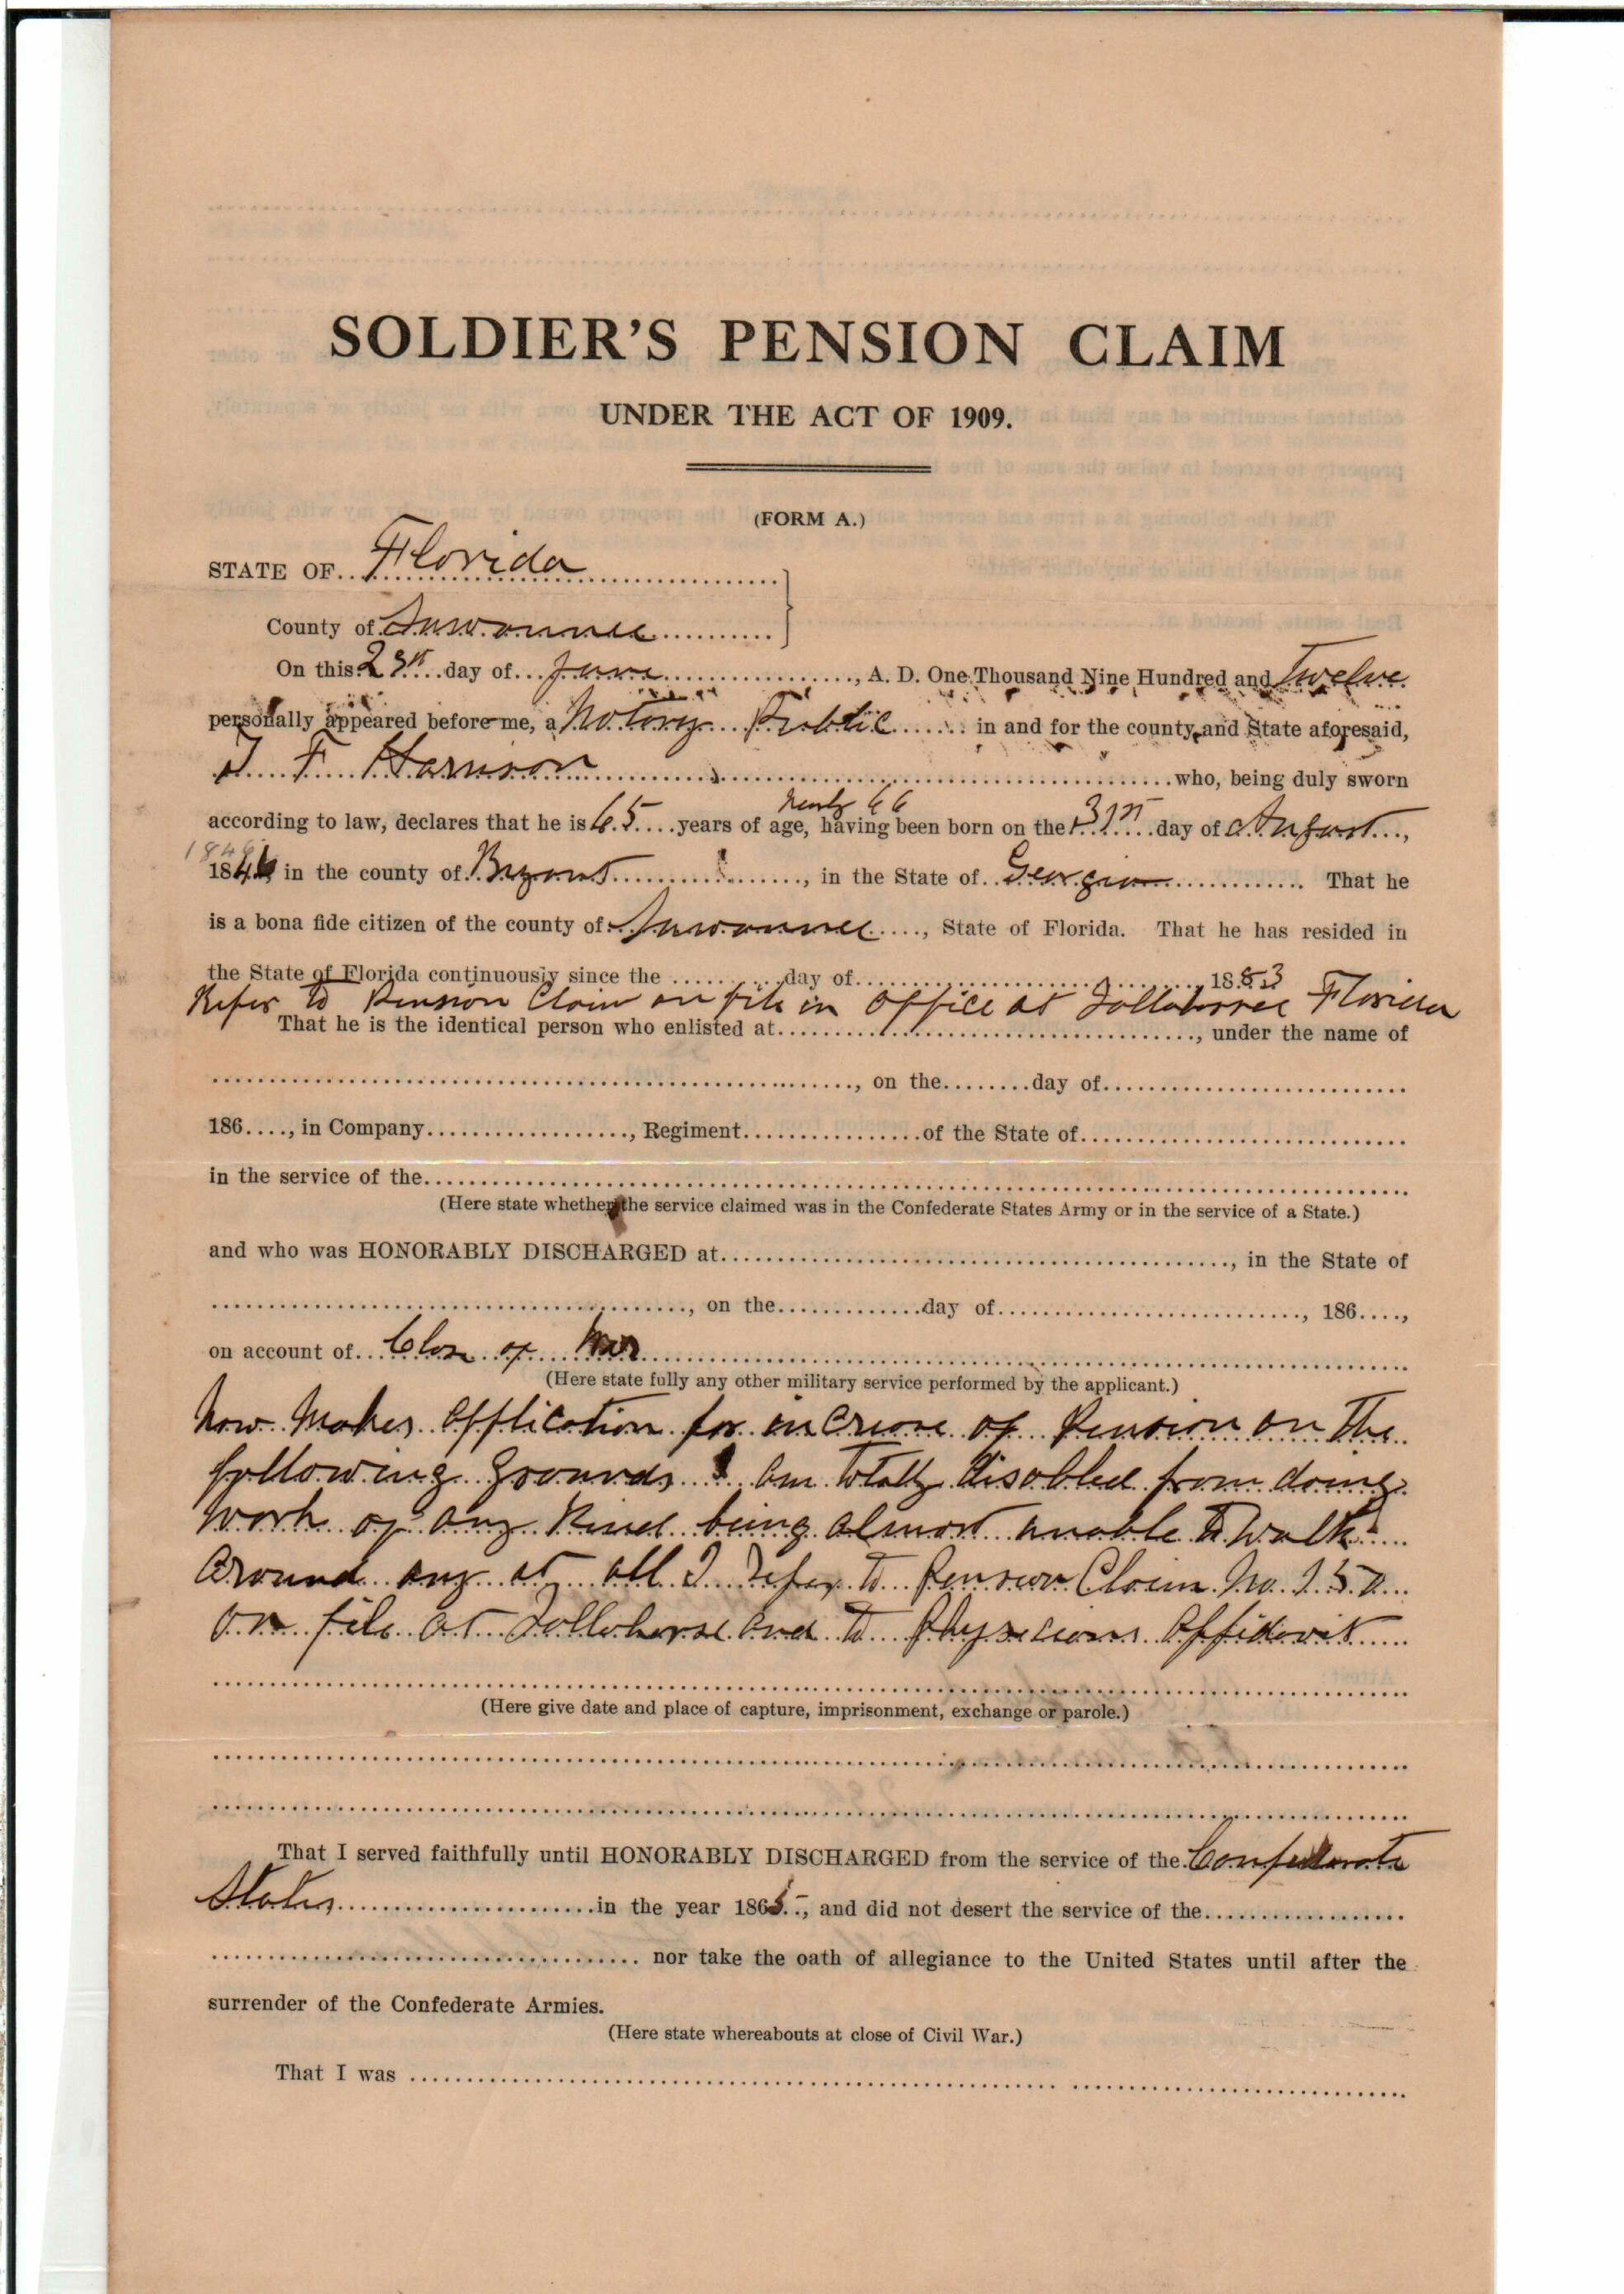 SOLDIER'S PENSION CLAIM
UNDER THE ACT OF 1909.
(FORM A.)
STATE OF Florida
County of Suwannee
On this 23rd day of June, A. D. One Thousand Nine Hundred and Twelve
personally appeared before me, a Notary Public in and for the county and State aforesaid,
F Harrison who, being duly sworn
nearly 66
according to law, declares that he is 65 years of age, having been born on the 31st day of August,
1846
1846 in the county of Bryant, in the State of Georgia That he
is a bona fide citizen of the county of Suwannee, State of Florida. That he has resided in
the State of Florida continuously since the day of 1883
Refer to Pension Claim on file in office at Tallahassee Florida
That he is the identical person who enlisted at, under the name of
, on the day of
186, in Company, Regiment of the State of
in the service of the
(Here state whether the service claimed was in the Confederate States Army or in the service of a State.)
and who was HONORABLY DISCHARGED at, in the State of
, on the day of, 186,
on account of Close of War
(Here state fully any other military service performed by the applicant.)
Now Makes application for increase of Pension on The
following grounds I am totaly disabled from doing
work of any Kind being almost unable to walk
around any at all I refer to Pension Claim No. 150
on file at Tallahasse and to Physicians affidavit
(Here give date and place of capture, imprisonment, exchange or parole.)
That I served faithfully until HONORABLY DISCHARGED from the service of the Confederate
States in the year 1865, and did not desert the service of the
nor take the oath of allegiance to the United States until after the
surrender of the Confederate Armies.
(Here state whereabouts at close of Civil War.)
That I was